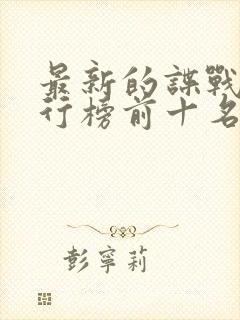 最新的諜戰
行榜前十名
彭寧莉